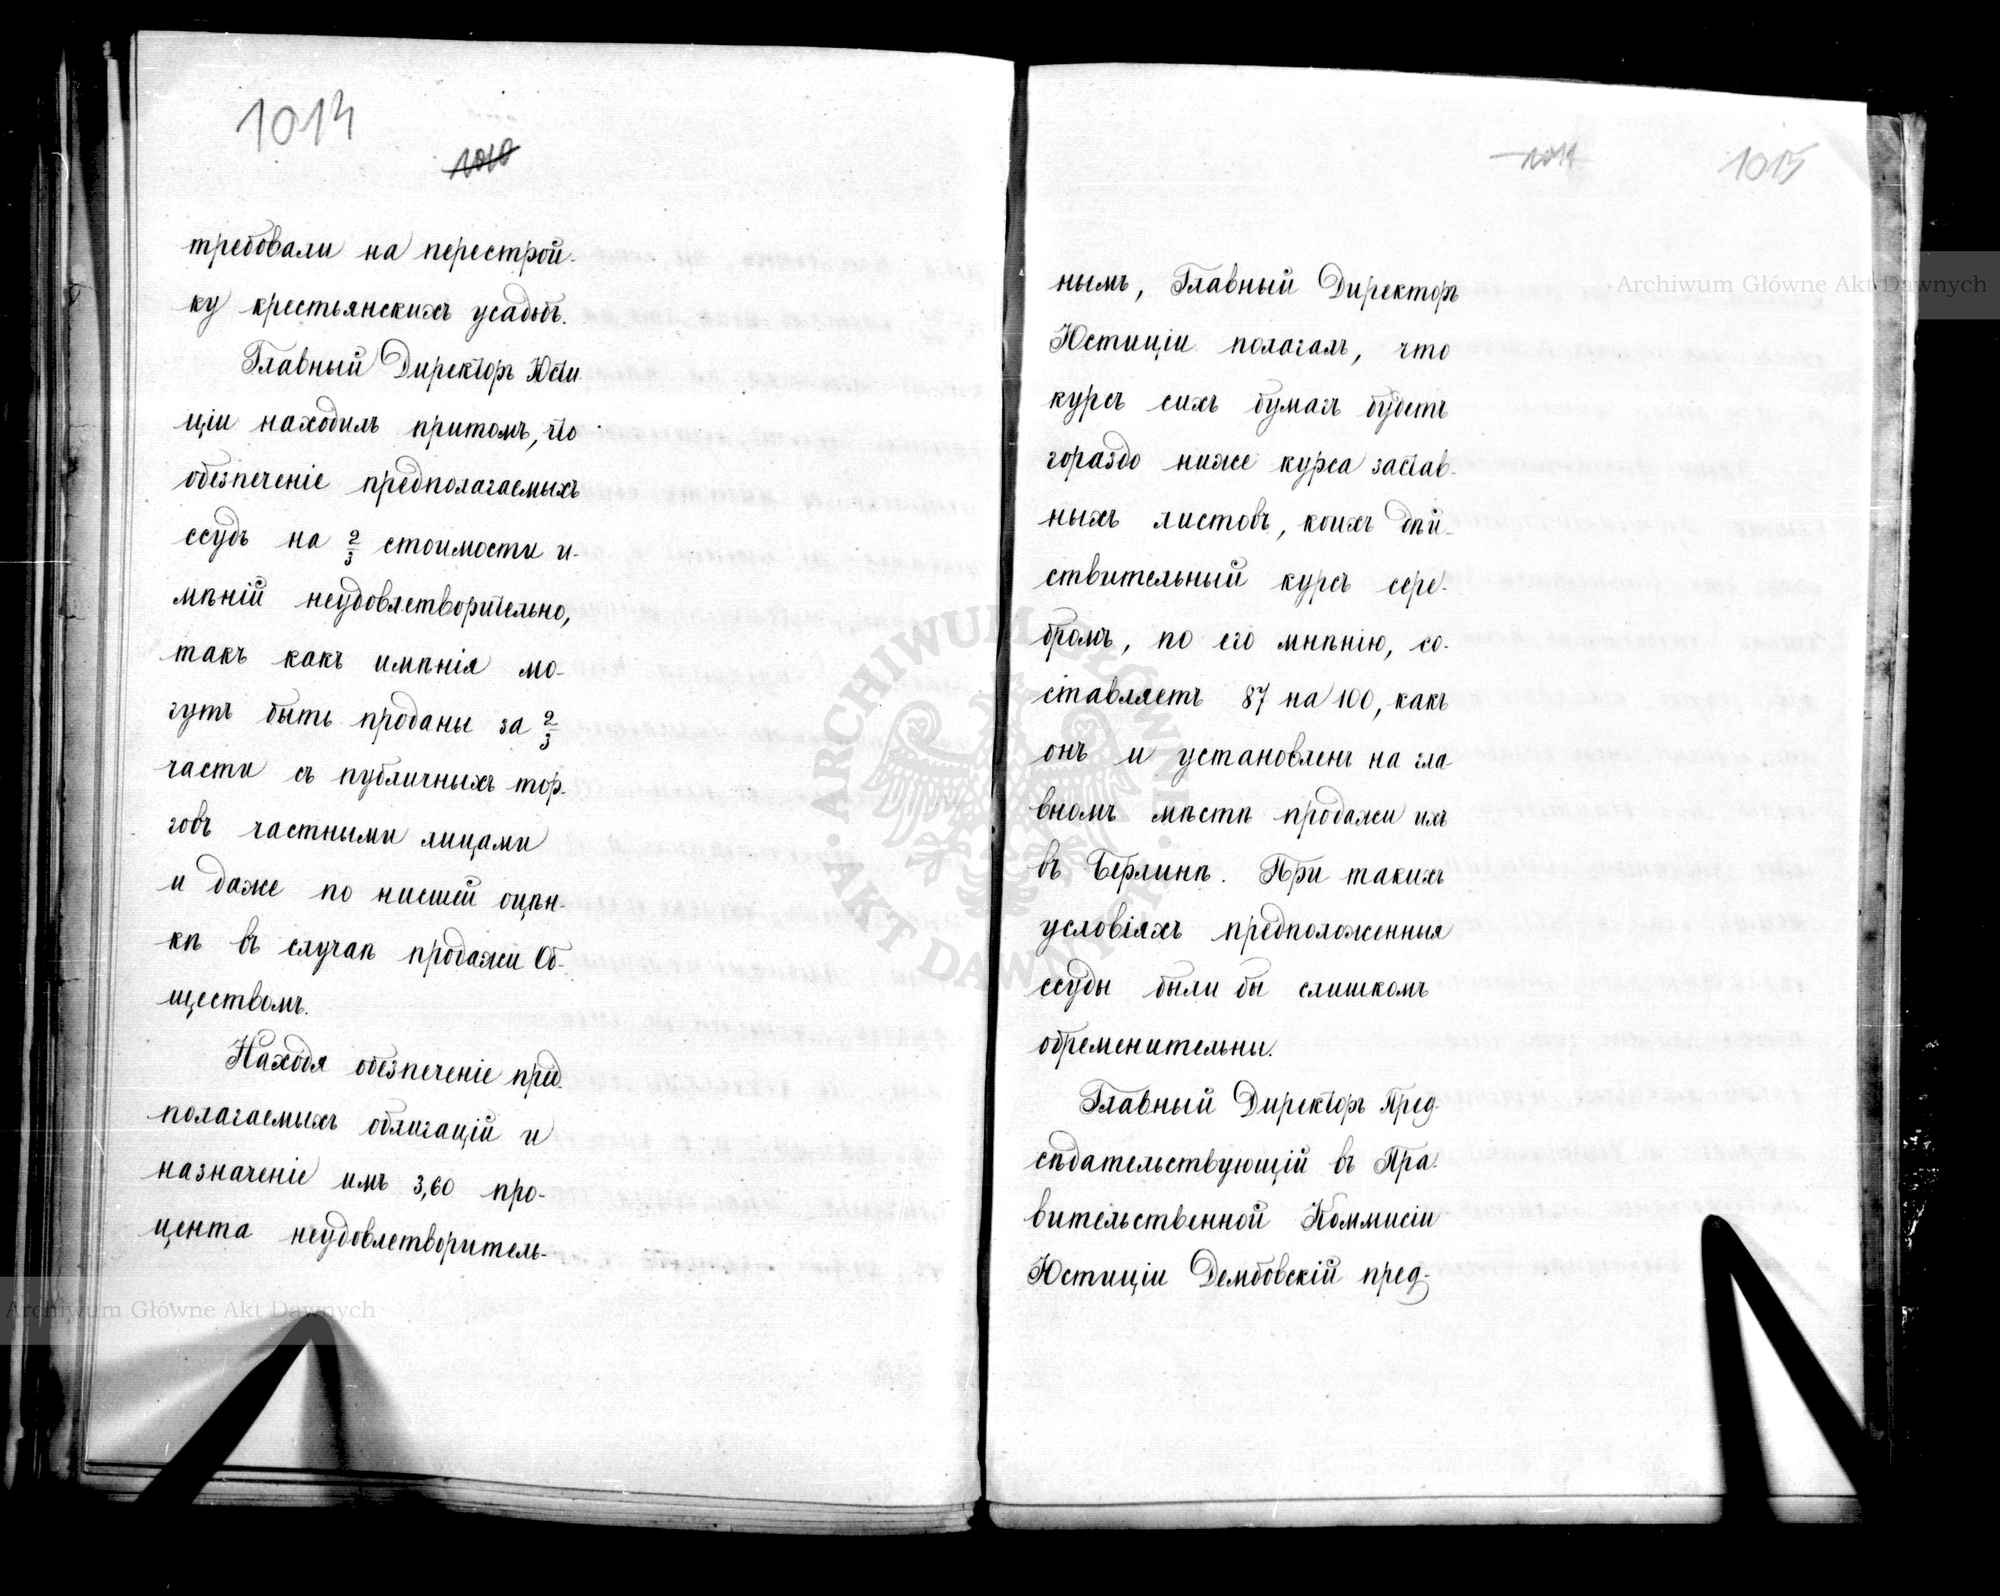 1014
1010
требовали на перестрой-
ку крестьянскихъ усадьбъ.
Главный Директоръ Юсти
ціи находилъ притомъ, что
обезпеченіе предполагаемыхъ
ссудъ на 2/3 стоимости и-
мѣній неудовлетворительно,
такъ какъ имѣнія мо-
гутъ быть проданы за 2/3
части съ публичныхъ тор-
говъ частными лицами
и даже по нисшей оцѣн-
кѣ въ случаѣ продажи Об-
ществомъ.
Находя обезпеченіе пред-
полагаемыхъ облигацій и
назначеніе имъ 3,60 про-
цента неудовлетворитель-
1011
1015
нымъ, Главный Директоръ
Юстиціи полагалъ, что
курсъ сихъ бумагъ будетъ
гораздо ниже курса застав-
ныхъ листовъ, коихъ дѣй-
ствительный курсъ сере-
бромъ, по его мнѣнію, со-
ставляетъ 87 на 100, какъ
онъ и установленъ на гла
вномъ мѣстѣ продажи ихъ
въ Берлинѣ. При такихъ
условіяхъ предположенныя
ссуды были бы слишкомъ
обременительны.
Главный Директоръ Пред-
сѣдательствующій въ Пра-
вительственной Коммисіи
Юстиціи Дембовскій пред-
Archiwum Główne Akt Dawnych
Archiwum Główne Akt Dawnych
ARCHIWUM GŁÓWNE
AKT DAWNYCH